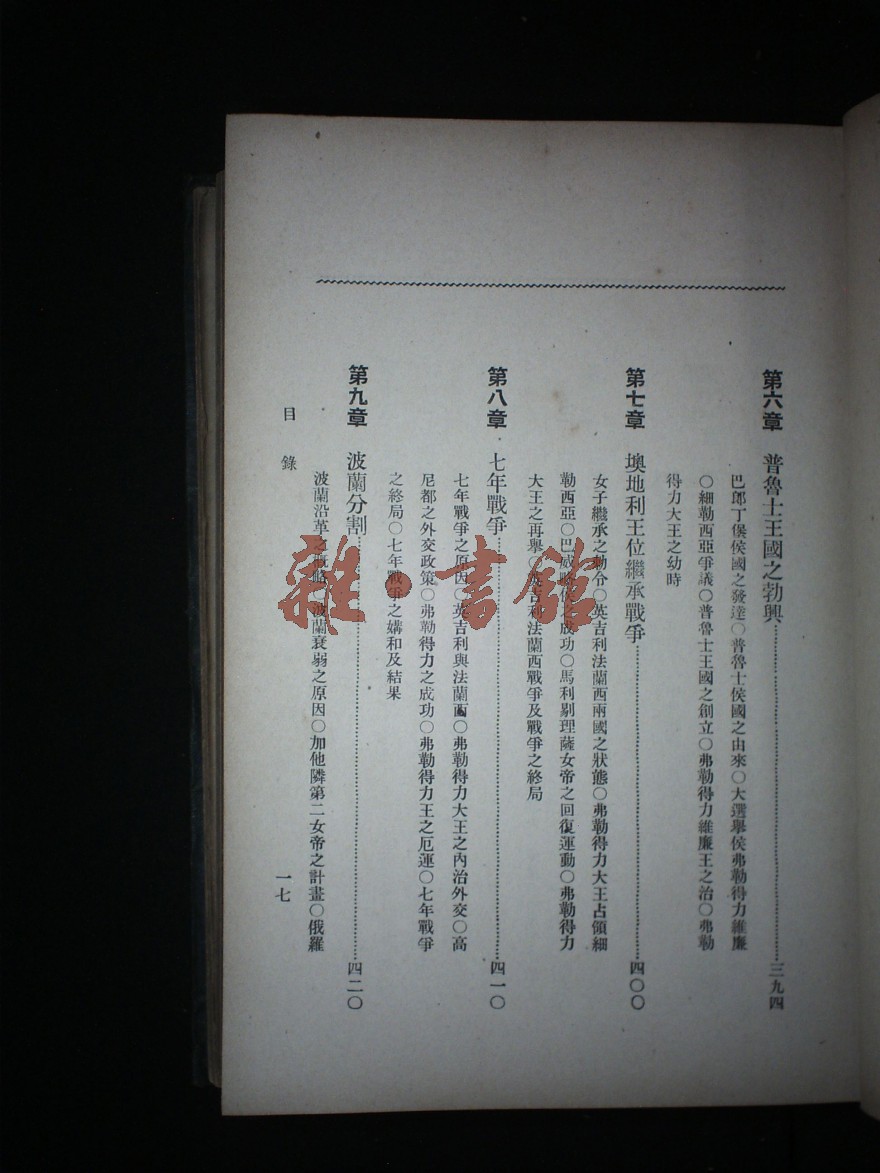 第六章 普魯士王國之勃興 三九四
巴郎丁堡侯國之發達○普魯士侯國之由來○大選舉侯弗勒得力維廉
○細勒西亞爭議○普魯士王國之創立○弗勒得力維廉王之治○弗勒
得力大王之幼時
第七章 墺地利王位繼承戰爭 四〇〇
女子繼承之勅令○英吉利法蘭西兩國之狀態○弗勒得力大王占領細
勒西亞○巴威 侯之成功○馬利剔理薩女帝之回復運動○弗勒得力
大王之再擧○英吉利法蘭西戰爭及戰爭之終局
第八章 七年戰爭 四一〇
七年戰爭之原因○英吉利與法蘭西○弗勒得力大王之內治外交○高
尼都之外交政策○弗勒得力之成功○弗勒得力王之厄運○七年戰爭
之終局○七年戰爭之媾和及結果
第九章 波蘭分割 四二〇
波蘭沿革之概略○波蘭衰弱之原因○加他隣第二女帝之計畫○俄羅
目錄
一七
雜·書館